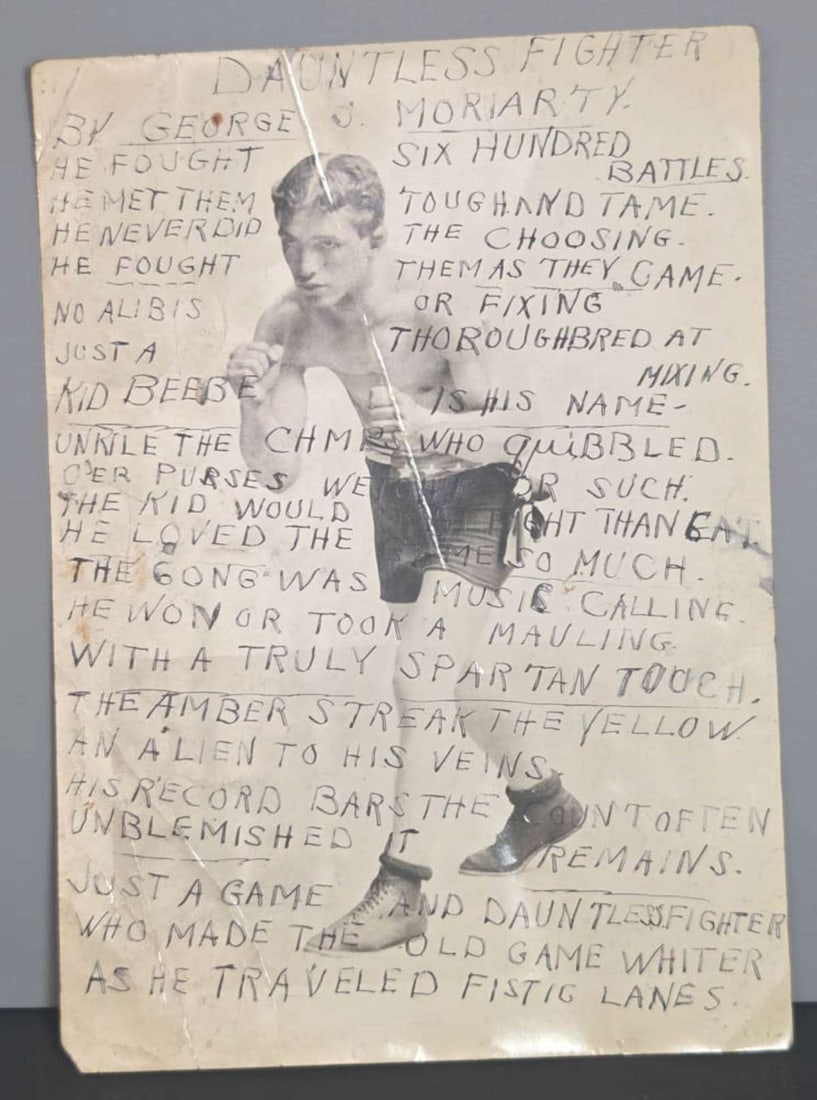 DAUNTLESS FIGHTER
BY GEORGE J. MORIARTY.
HE FOUGHT SIX HUNDRED
BATTLES.
HE MET THEM TOUGH AND TAME.
HE NEVER DID THE CHOOSING.
HE FOUGHT THEM AS THEY CAME.
NO ALIBIS OR FIXING
JUST A THOROUGHBRED AT
MIXING.
KID BEEBE IS HIS NAME-
UNKILE THE CHMPS WHO QUIBBLED.
O'ER PURSES OR SUCH.
THE KID WOULD FIGHT THAN EAT.
HE LOVED THE GAME SO MUCH.
THE GONG WAS MUSIC CALLING.
HE WON OR TOOK A MAULING.
WITH A TRULY SPARTAN TOUCH.
THE AMBER STREAK THE YELLOW
AN ALIEN TO HIS VEINS.
HIS RECORD BARS THE COUNT OFTEN
UNBLEMISHED IT
REMAINS.
JUST A GAME AND DAUNTLESS FIGHTER
WHO MADE THE OLD GAME WHITER
AS HE TRAVELED FISTIC LANES.